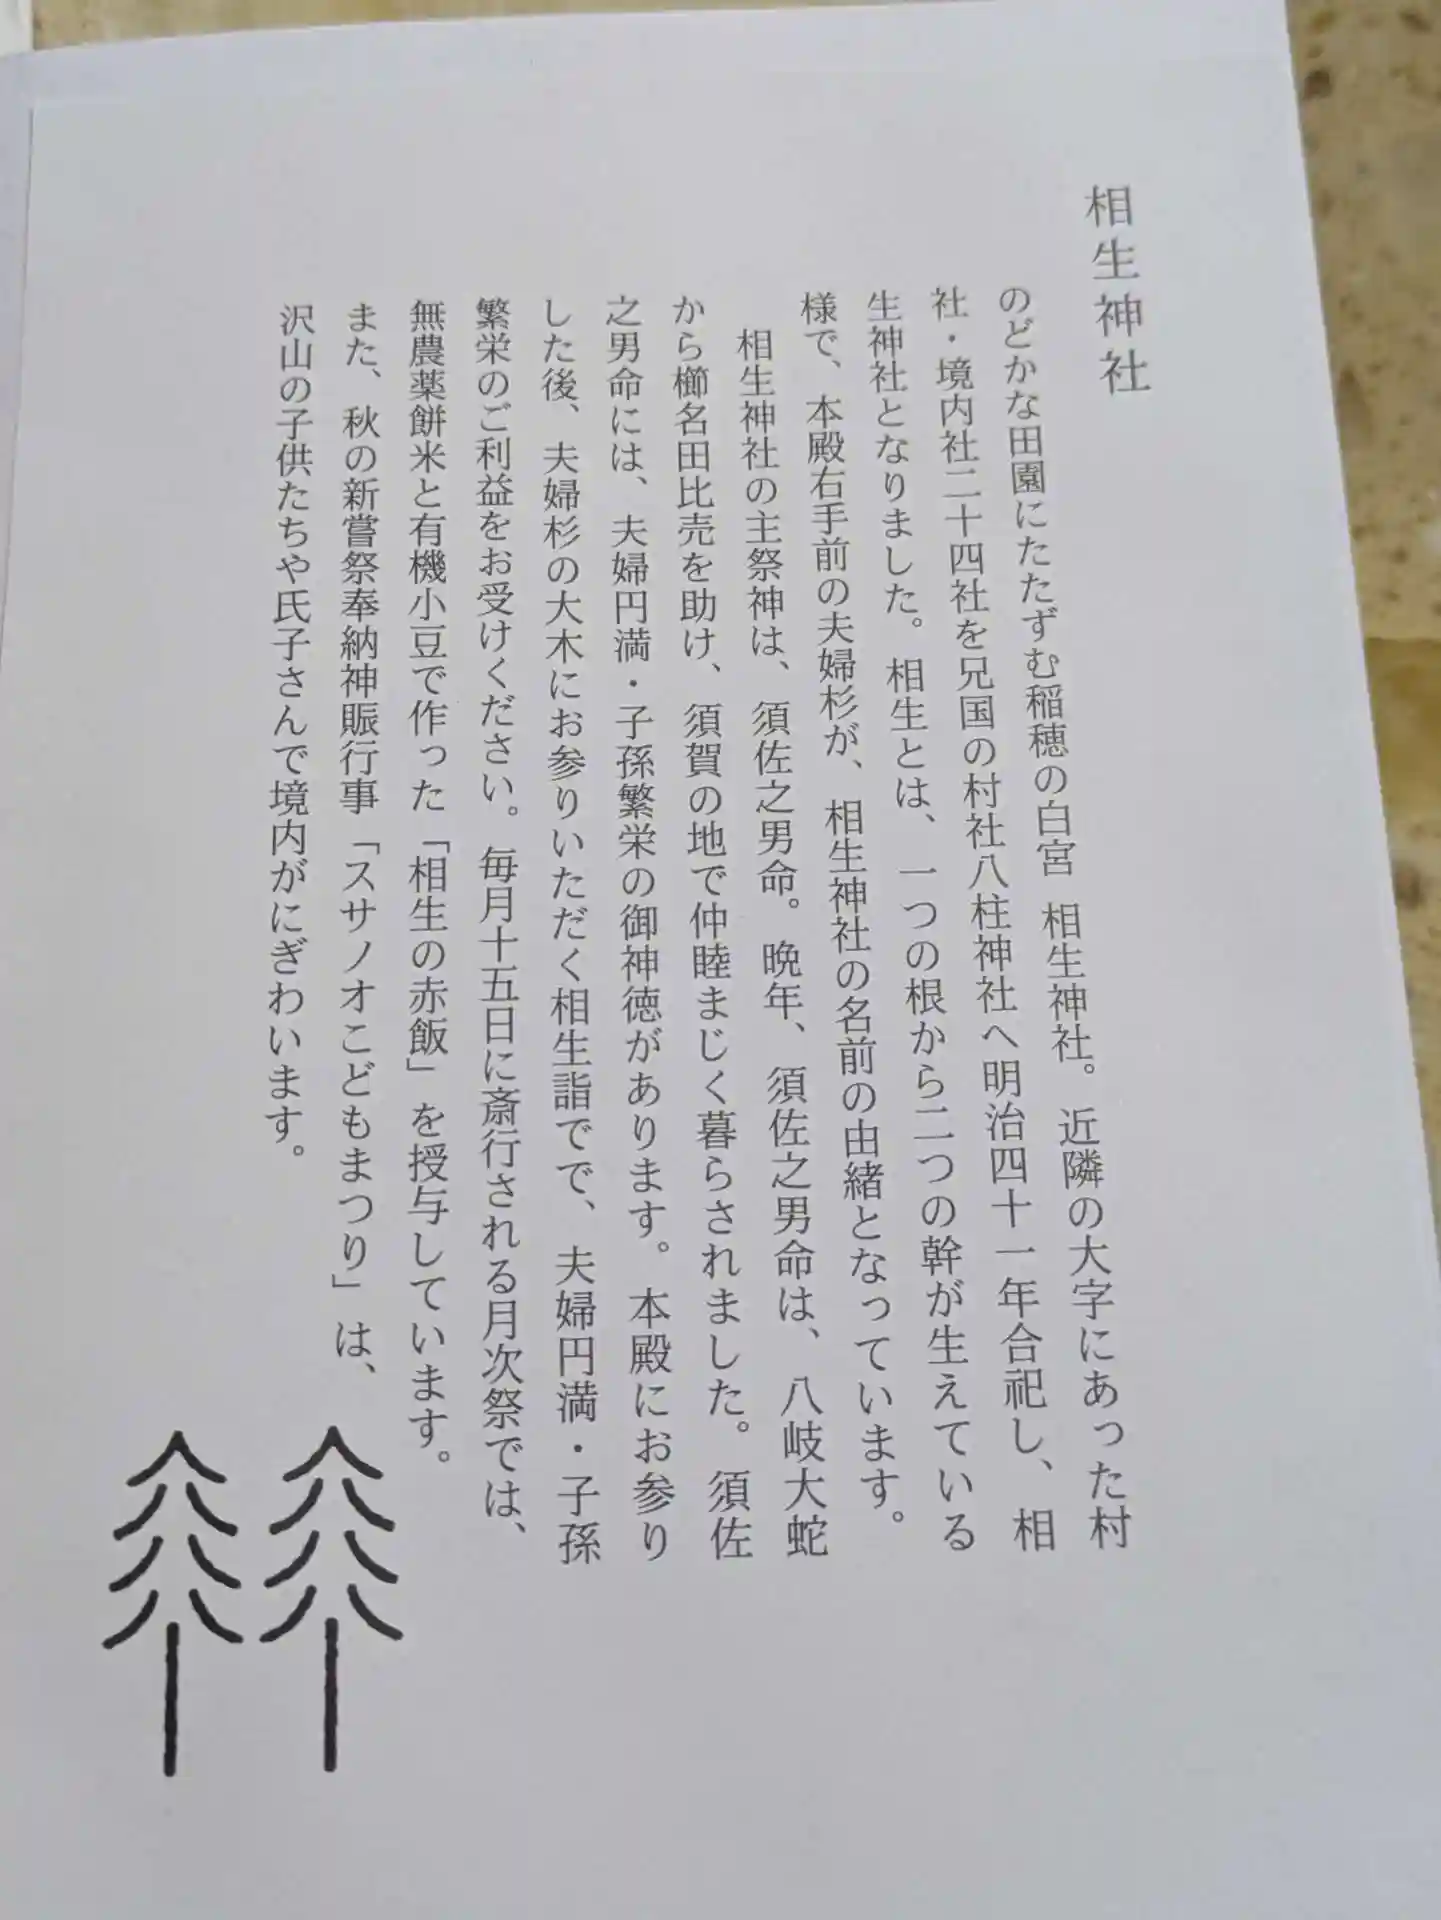 相生神社
のどかな田園にたたずむ稲穂の白宮 相生神社。近隣の大字にあった村
社・境内社二十四社を兄国の村社八柱神社へ明治四十一年合祀し、相
生神社となりました。相生とは、一つの根から二つの幹が生えている
様で、本殿右手前の夫婦杉が、相生神社の名前の由緒となっています。
相生神社の主祭神は、須佐之男命。晩年、須佐之男命は、八岐大蛇
から櫛名田比売を助け、須賀の地で仲睦まじく暮らされました。須佐
之男命には、夫婦円満・子孫繁栄の御神徳があります。本殿にお参り
した後、夫婦杉の大木にお参りいただく相生詣でで、夫婦円満・子孫
繁栄のご利益をお受けください。毎月十五日に斎行される月次祭では、
無農薬餅米と有機小豆で作った「相生の赤飯」を授与しています。
また、秋の新嘗祭奉納神賑行事「スサノオこどもまつり」は、
沢山の子供たちや氏子さんで境内がにぎわいます。